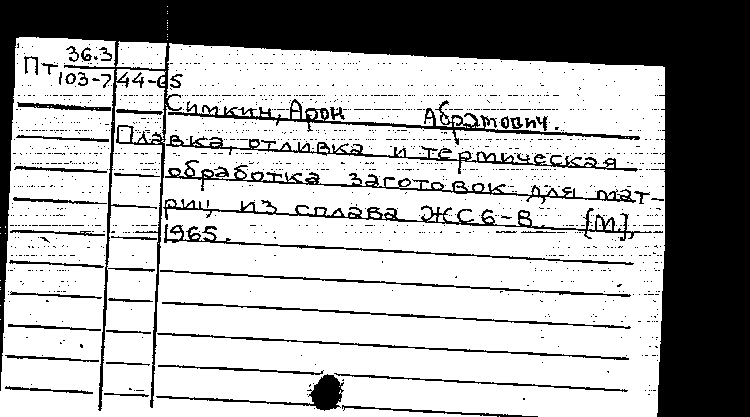 Пт 36.3
103-7 44-65
Симкин, Арон Абрамович.
Плавка, отливка и термическая
обработка заготовок для мат-
риц из сплава ЖС6-В. [М.],
1965.